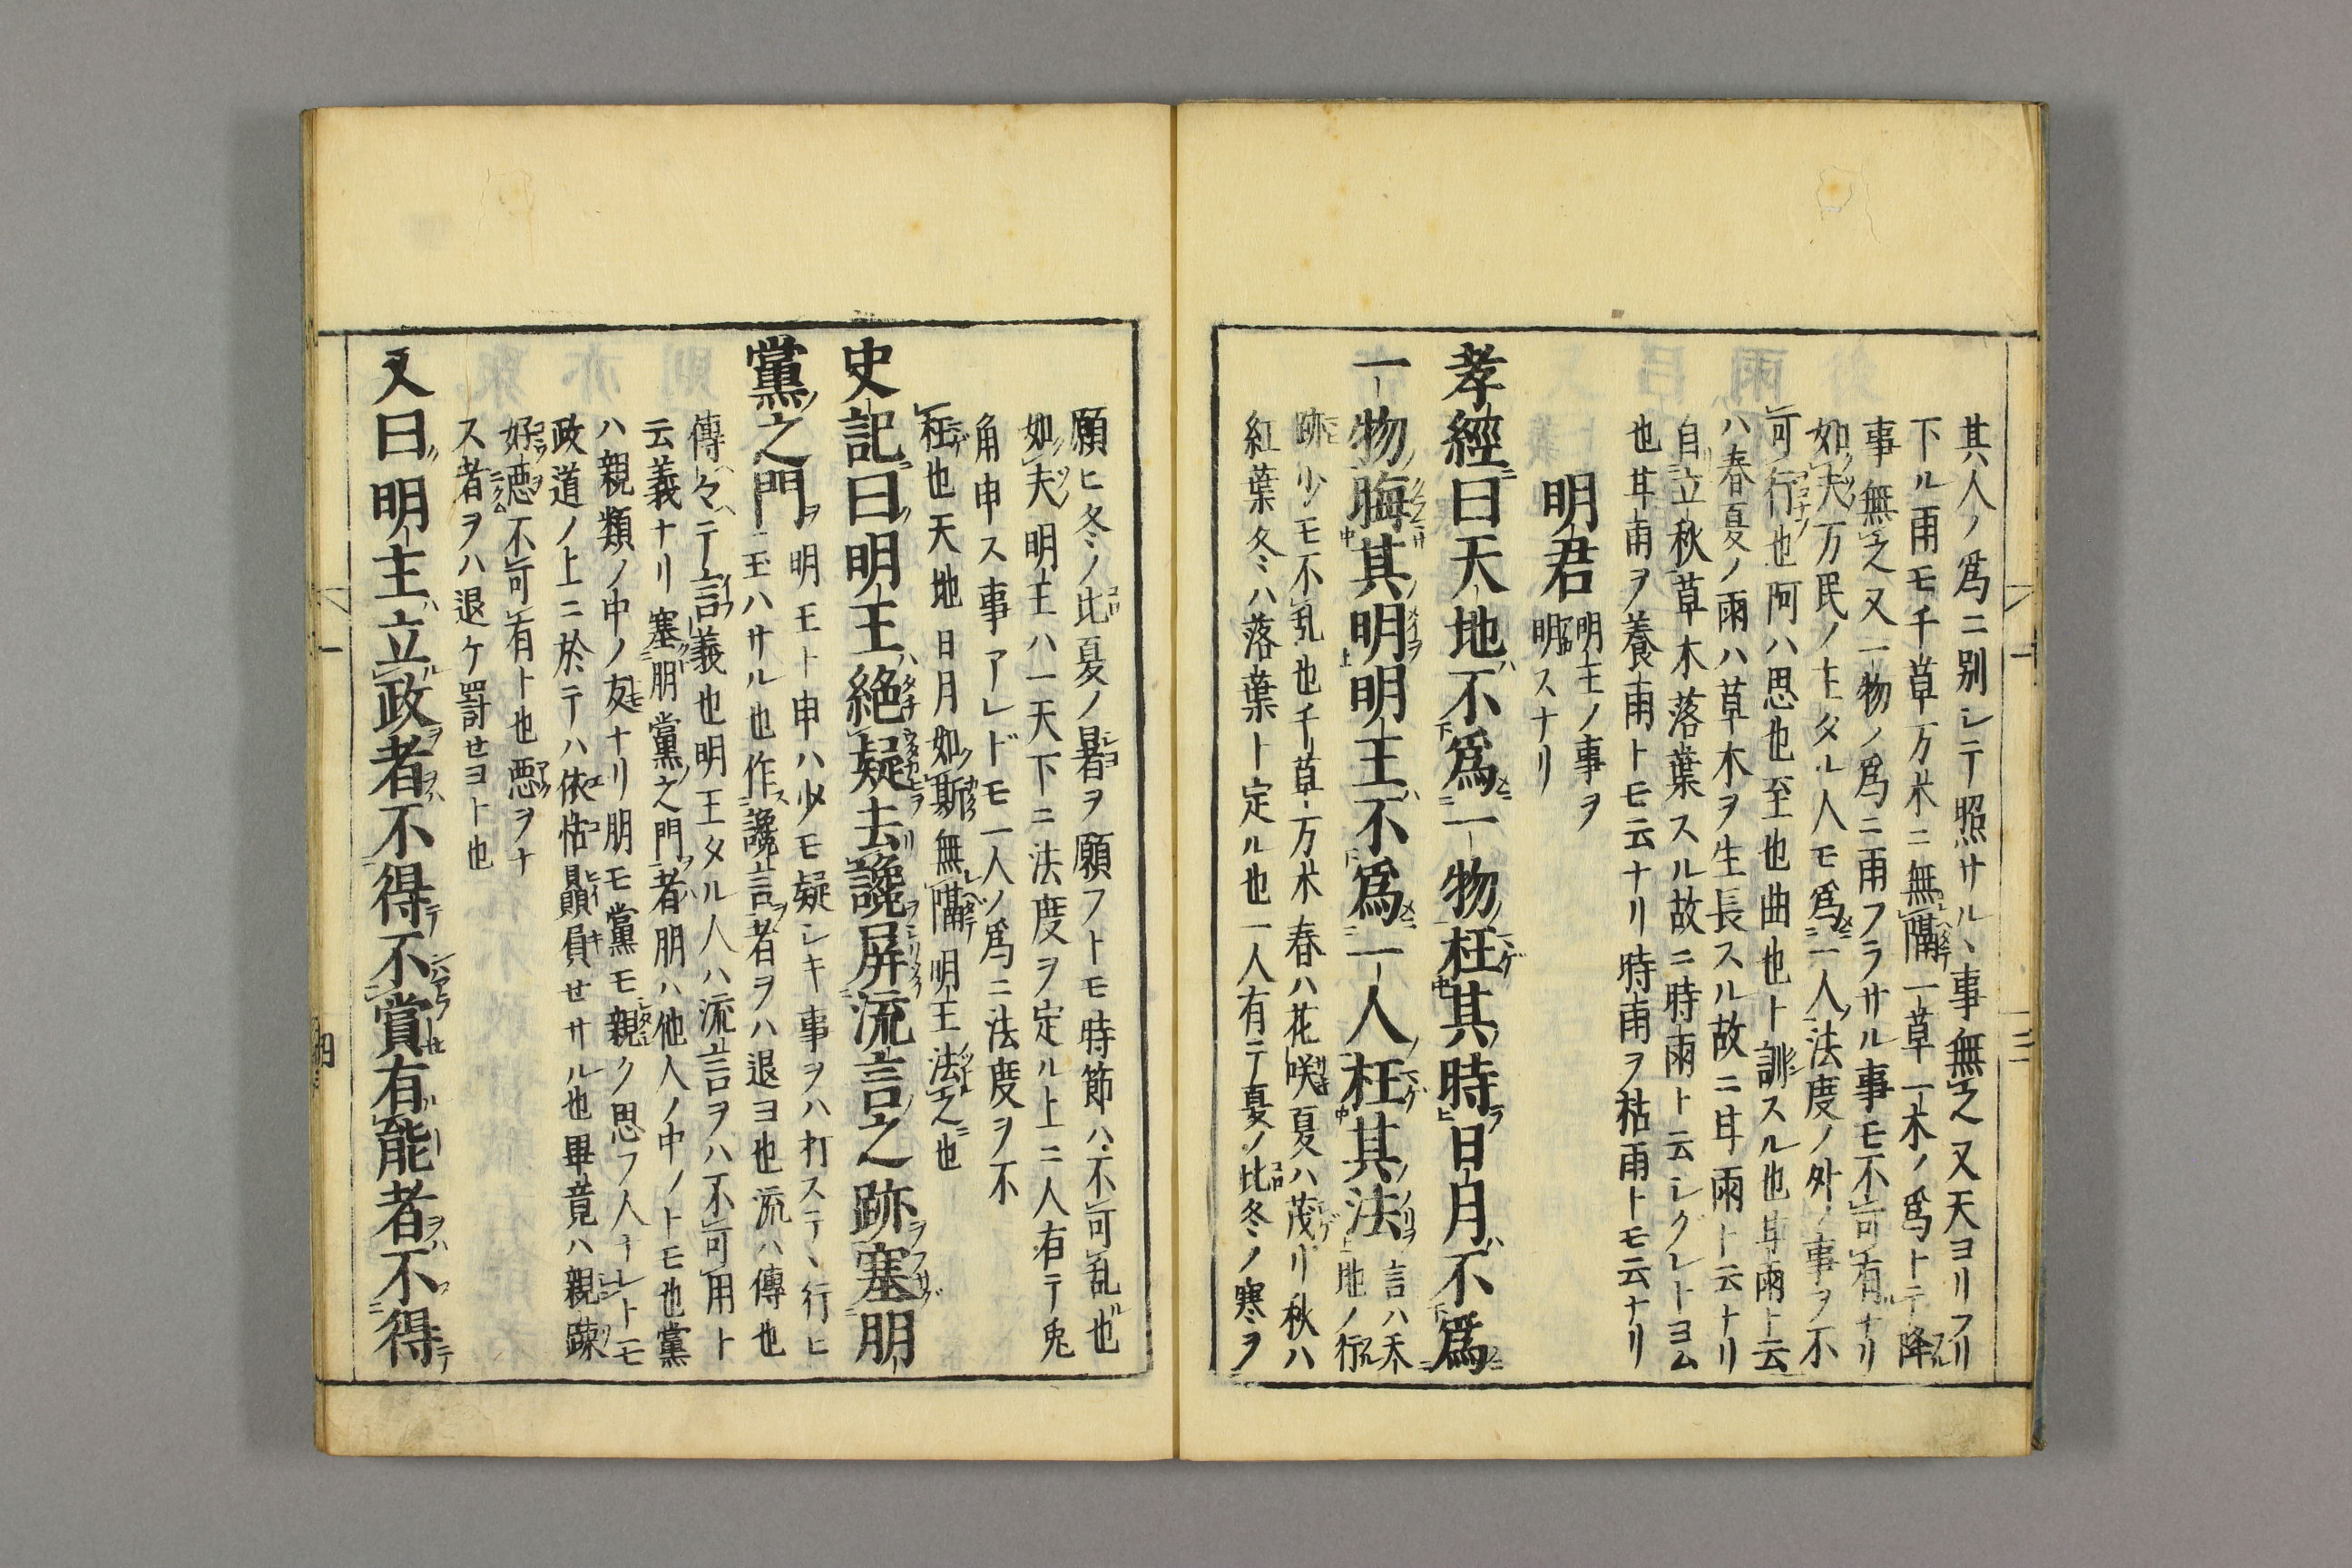 其人ノ爲ニ別シテ照サル丶事無之又天ヨリフリ
下ル雨モ千草万木ニ無隔一草一木ノ爲トテ降
事無之又一物ノ爲ニ雨フラサル事モ不可有ナリ
如夫万民ノ主タル人モ爲一人法度ノ外ノ事ヲ不
可行也阿ハ思也至也曲也ト訓スル也甘雨ト云
ハ春夏ノ雨ハ草木ヲ生長スル故ニ甘雨ト云ナリ
自立秋草木落葉スル故ニ時雨ト云シグレトヨム
也甘雨ヲ養雨トモ云ナリ時雨ヲ枯雨トモ云ナリ
明君 明主ノ事ヲ
明スナリ
孝經曰天地不爲一物枉其時日月不爲
一物晦其明明王不爲一人枉其法 言ハ天
地ノ行
跡少モ不乱也千草万木春ハ花咲夏ハ茂リ秋ハ
紅葉冬ハ落葉ト定ル也一人有テ夏ノ比冬ノ寒ヲ
願ヒ冬ノ比夏ノ暑ヲ願フトモ時節ハ不可乱也
如夫明主ハ一天下ニ法度ヲ定ル上ニ人有テ兎
角申ス事アレドモ一人ノ爲ニ法度ヲ不
枉也天地日月如斯無隔明王法之也
史記曰明王絶疑去讒屏流言之跡塞朋
黨之門 明王ト申ハ少モ疑シキ事ヲハ打ステ丶行ヒ
玉ハサル也作讒言者ヲハ退ヨ也流ハ傳也
傳々テ言義也明王タル人ハ流言ヲハ不可用ト
云義ナリ塞朋黨之門者朋ハ他人ノ中ノトモ也黨
ハ親類ノ中ノ友ナリ朋モ黨モ親ク思フ人ナレトモ
政道ノ上ニ於テハ依怙贔負セサル也畢竟ハ親疎
好悪不可有ト也悪ヲナ
ス者ヲハ退ケ罸セヨト也
又曰明主立政者不得不賞有能者不得